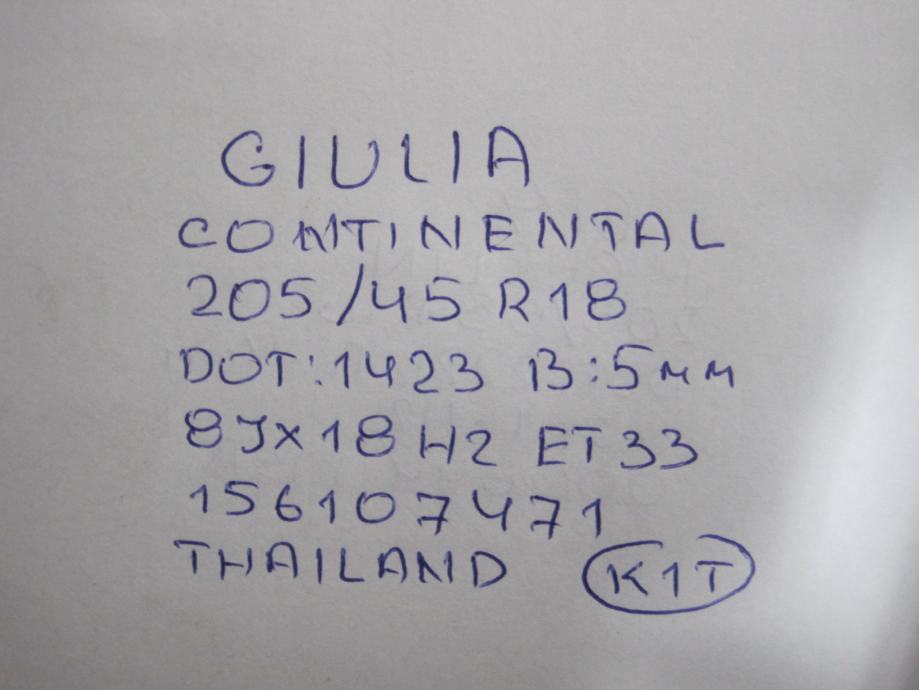 GIULIA
CONTINENTAL
205/45 R18
DOT:1423 B:5мм
8Jx18 H2 ET33
156107471
THAILAND K1T